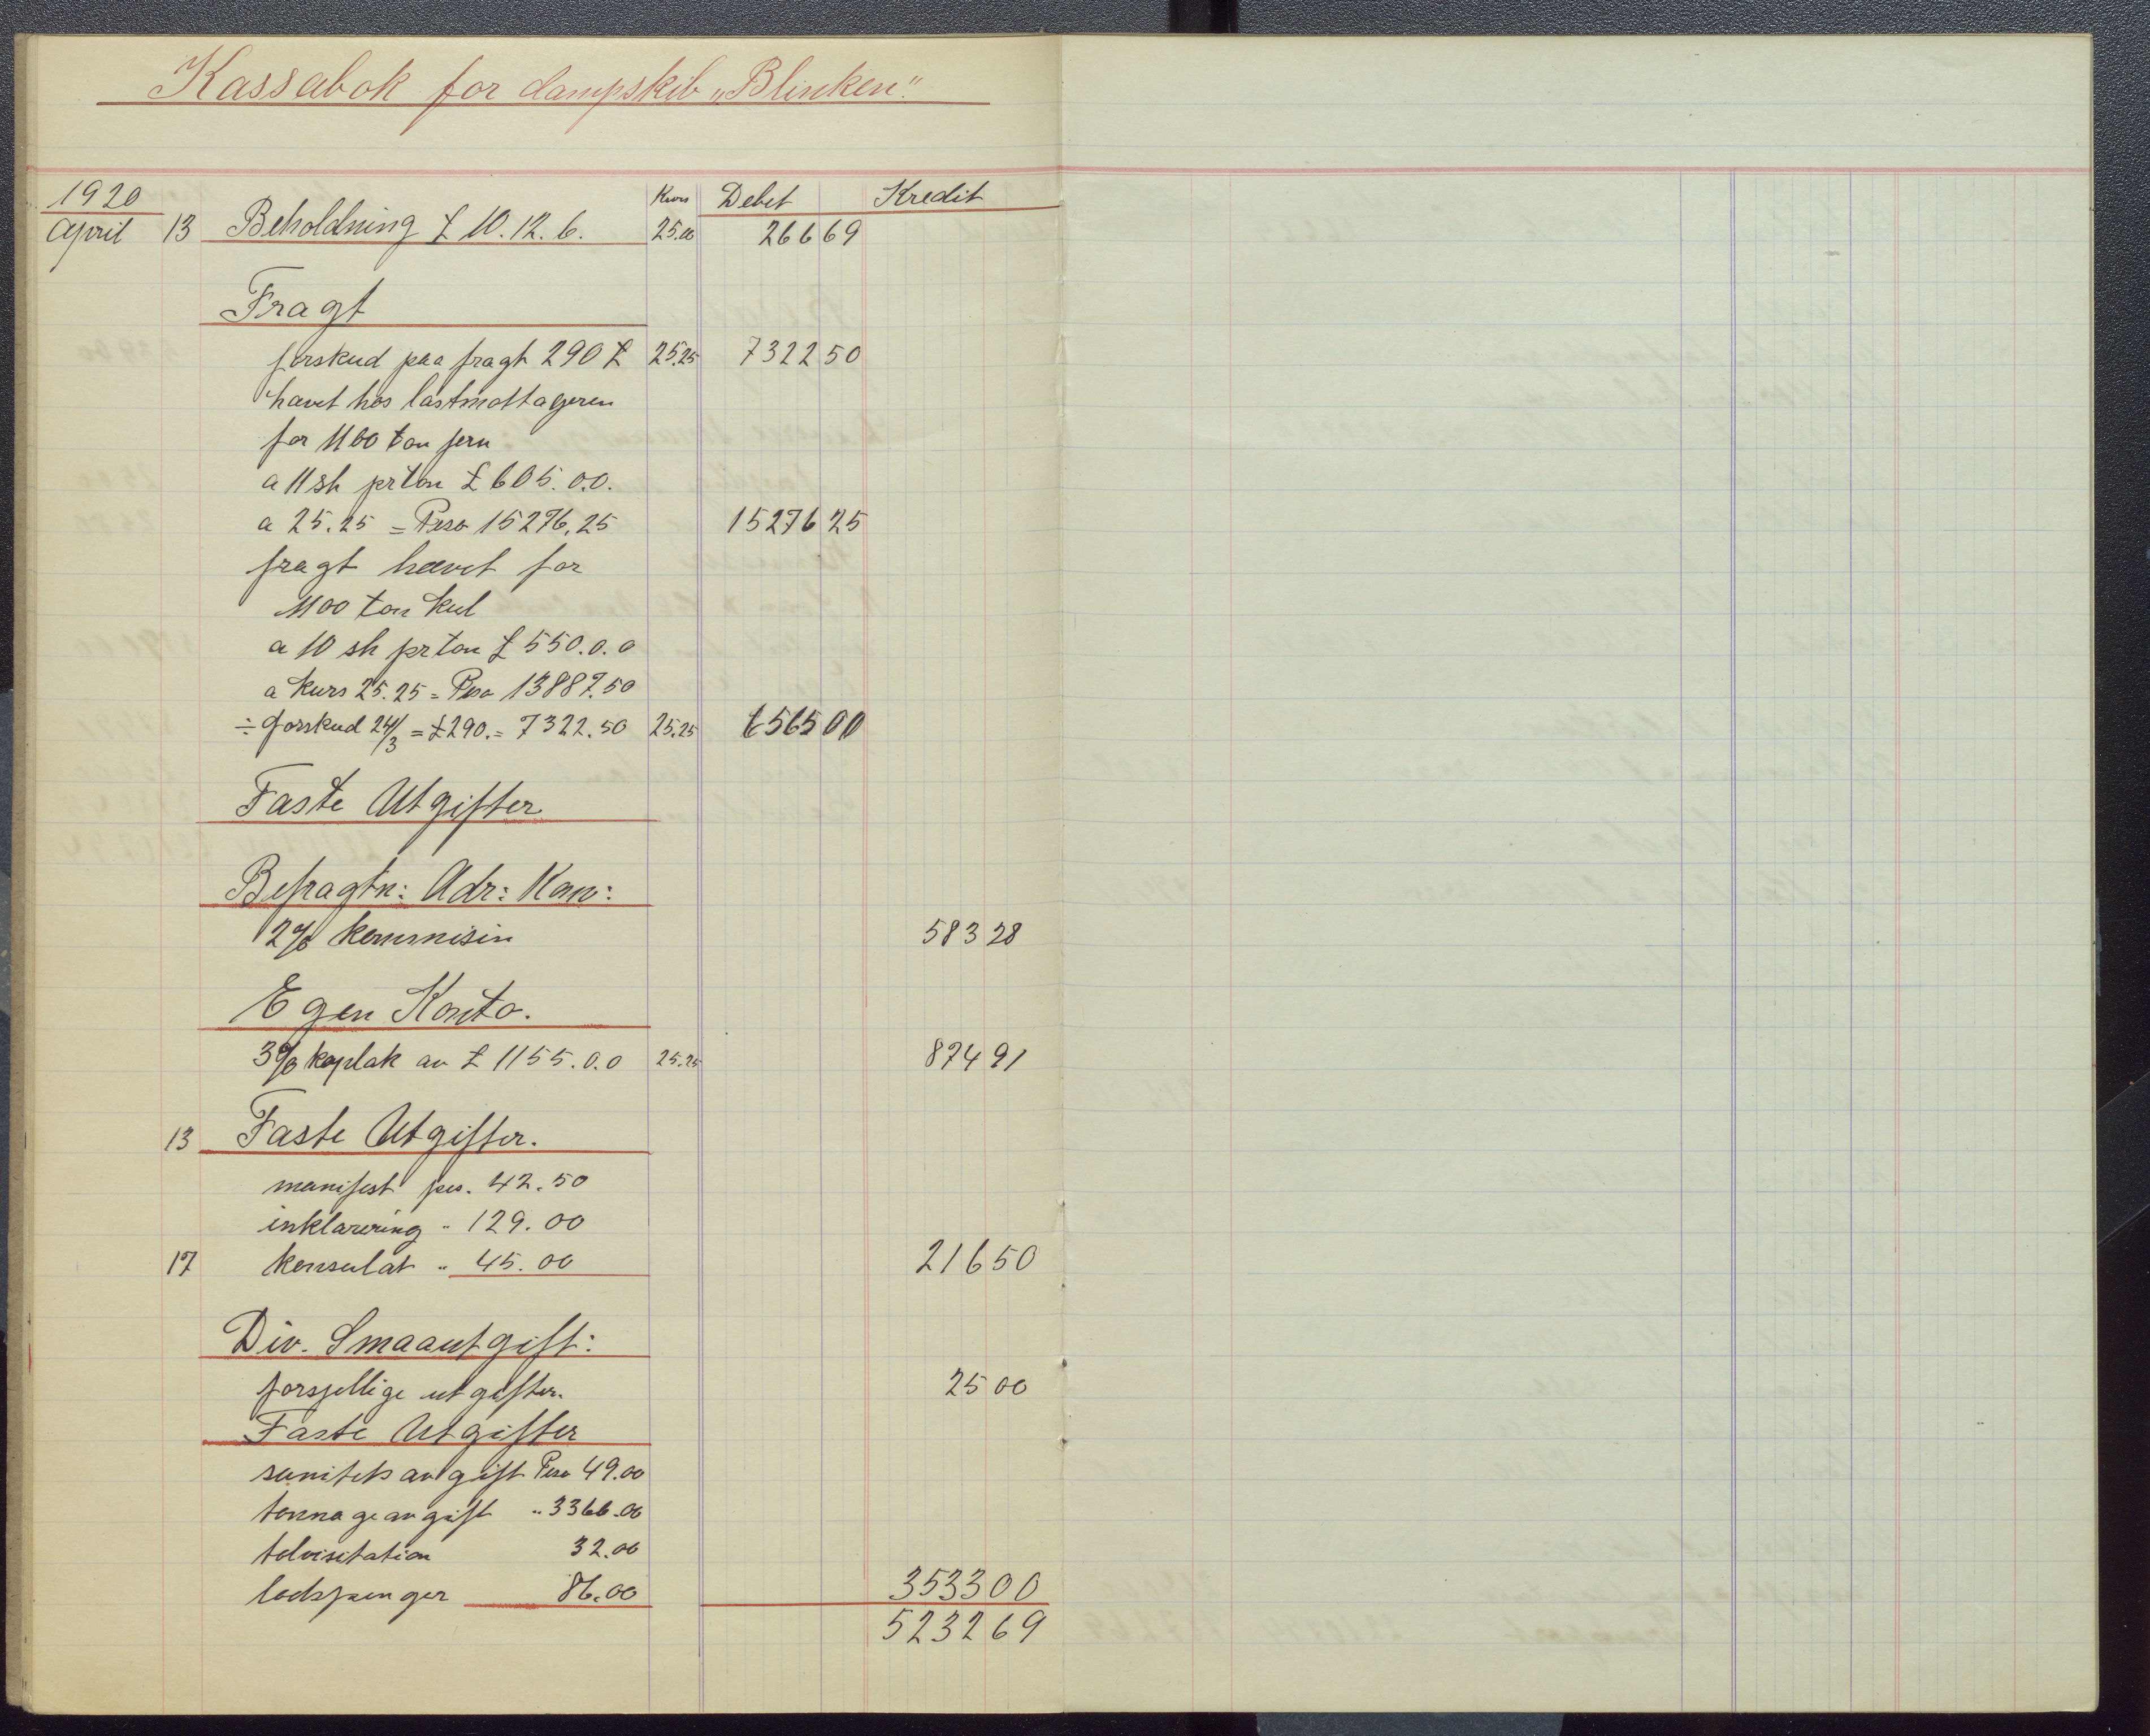 Kassabok for dampskib „Blinken".
1920 Kurs Debet Kredit
April 13 Beholdning £ 10.12.6. 25.00 266 69
Fragt
forskud paa fragt 290 £ 25.25 7322 50
hævet hos lastmottageren
for 1100 ton jern
a 11 sh pr ton £ 605.0.0.
a 25.25 = Peso 15276,25 15276 25
fragt hævet for
1100 ton kul
a 10 sh pr ton £ 550.0.0
a kurs 25.25 = Peso 13887.50
÷ forskud 24/3 = £ 290. = 7322.50 25.25 6565 00
Faste Utgifter
Befragtn: Adr: Kom:
2% kommisin 583 28
Egen Konto.
3% kaplak av £ 1155.0.0 25.25 874 91
13 Faste Utgifter.
manifest pes. 42.50
inklarering " 129.00
17 konsulat " 45.00 216 50
Div. Smaautgift:
forsjellige utgifter. 25 00
Faste Utgifter
sanitets avgift Peso 49.00
tonnageavgift " 3366.00
tolvisitation 32.00
lodspenger 86.00 3533 00
5232 69